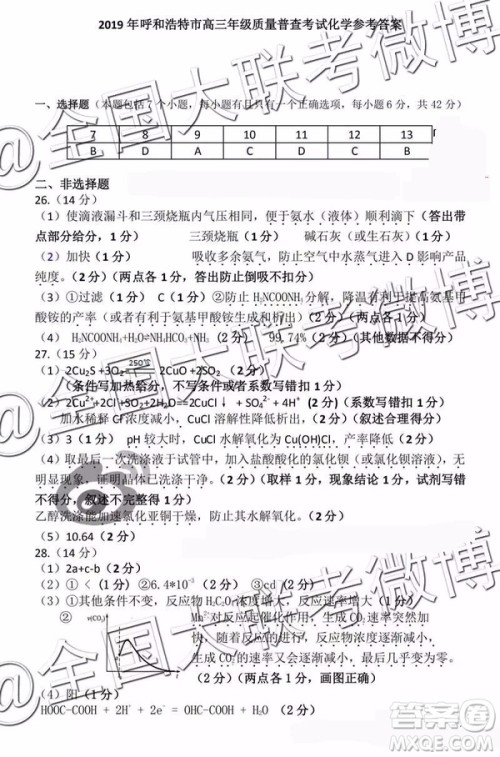 2019 年呼和浩特市高三年级质量普查考试化学参考答案
一、选择题(本题包括 7 个小题,每小题有且只有一个正确选项,每小题 6 分,共 42 分)
7 8 9 10 11 12 13
B D A C D B
二、非选择题
26.(14 分)
(1)使滴液漏斗和三颈烧瓶内气压相同,便于氨水(液体)顺利滴下(答出带
点部分给分,1 分) 三颈烧瓶(1 分) 碱石灰(或生石灰)(1 分)
(2)加快(1 分) 吸收多余氨气,防止空气中水蒸气进入 D 影响产品
纯度。(2 分)(两点各 1 分,答出防止倒吸不扣分)
(3)①过滤(1 分) C(1 分)②防止 H₂NCOONH₄分解,降温有利于提高氨基甲
酸铵的产率(或者有利于氨基甲酸铵结晶析出)(2 分)(两点各 1 分)
(4) H₂NCOONH₄+H₂O⇌NH₄HCO₃+NH₃(2 分) 99.74%(2 分)(其他数据不得分)
27.(15 分)
(1)2Cu₂S +3O₂ 250℃ 2CuO +2SO₂(2 分)
(条件写加热不扣分,不写条件或者系数写错扣 1 分)
(2)2Cu²⁺+2Cl⁻+SO₂+2H₂O 2CuCl↓ + SO₄²⁻ + 4H⁺(2 分)(系数写错扣 1 分)
加水稀释 Cl⁻浓度减小,CuCl 溶解性降低析出,(2 分)(叙述合理得分)
(3)3(1 分) pH 较大时,CuCl 水解程度大转化为 Cu(OH)Cl,产率降低(2 分)
(4)取最后一次洗涤液于试管中,加入盐酸酸化的氯化钡,加入氯化钡溶液,无
明显现象,证明沉淀已洗涤干净。(2 分)(取样 1 分,现象结论 1 分,试剂写错
不得分,叙述不完整得 1 分)
乙醇洗涤能加速氯化亚铜干燥,防止其氧化。(2 分)
(5)10.64(2 分)
28.(14 分)
(1)2a+c-b(2 分)
(2)① <(1 分)②6.4*10⁻³(2 分)③cd(2 分)
(3)①其他条件不变,反应物 H₂C₂O₄浓度增大,反应速率增大(1 分)
② v(CO₂) Mn²⁺对反应起催化作用,生成 CO₂速率突然加
快,但随着反应物浓度逐渐减小,
生成 CO₂的速率又会逐渐减小,直至最低。
(2 分)(两点各 1 分,画图正确)
(4)阳(1 分)
HOOC-COOH + 2H⁺ + 2e⁻ = OHC-COOH + H₂O (2 分)
@全国大联考微博
@全国大联考微博
答案圈
MXQE.COM